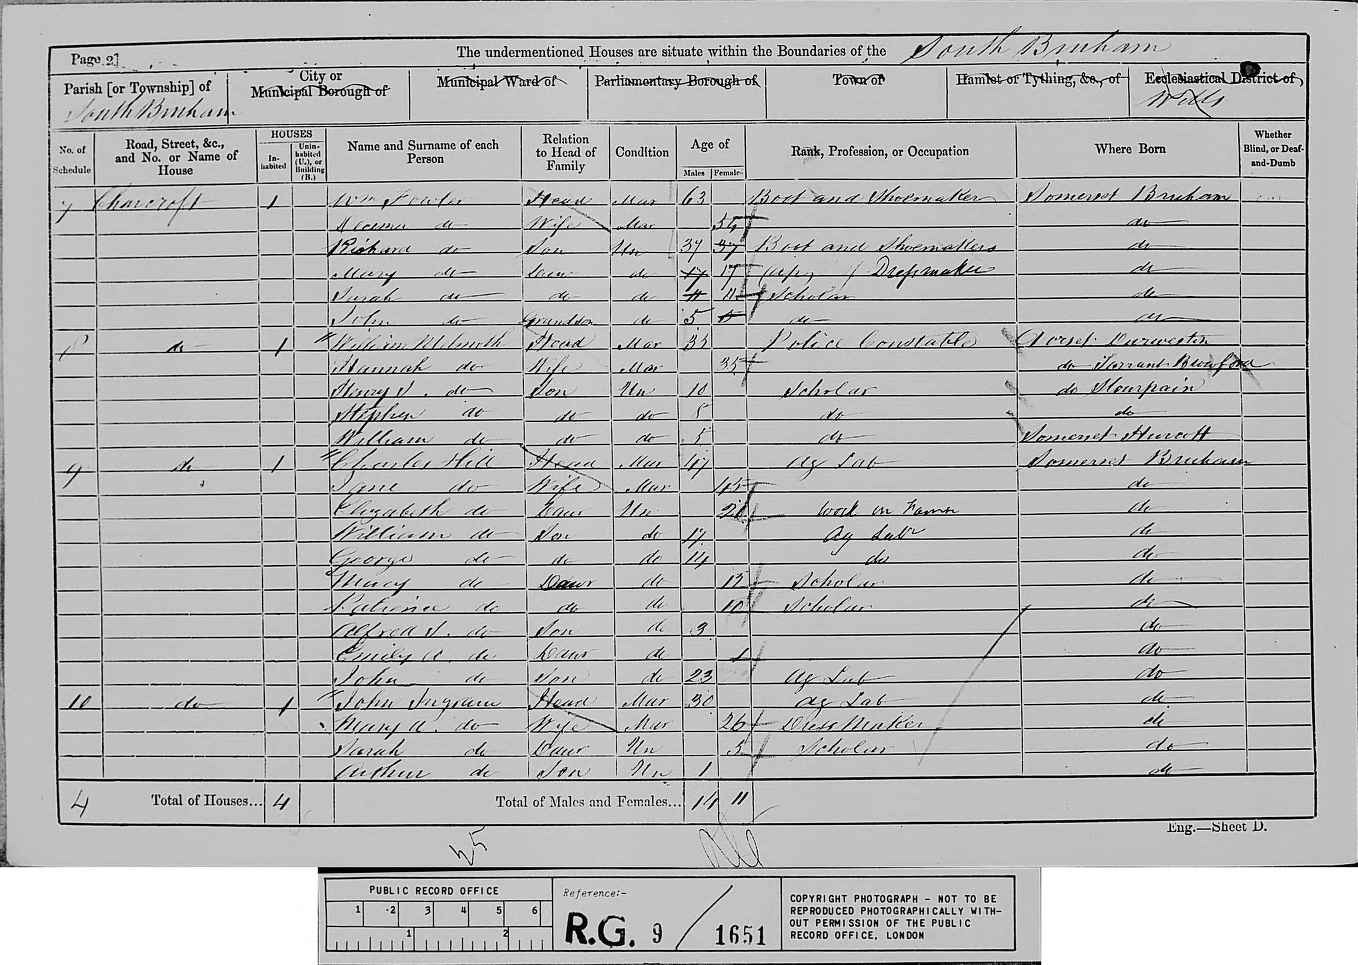 Page 2]
The undermentioned Houses are situate within the Boundaries of the South Bruham
Parish [or Township] of South Bruham
City or Municipal Borough of
Municipal Ward of
Parliamentary Borough of
Town of
Hamlet or Tything, &c., of
Ecclesiastical District of
Wells
No. of Schedule
Road, Street, &c., and No. or Name of House
HOUSES
In-habited
Unin-habited (U.), or Building (B.)
Name and Surname of each Person
Relation to Head of Family
Condition
Age of
Males
Females
Rank, Profession, or Occupation
Where Born
Whether Blind, or Deaf-and-Dumb
7 Charcroft 1 Wm Fowler Head Mar 63 Boot and Shoemaker Somerset Bruham
do Wife Mar do
Richard do Son Un 37 37 Boot and Shoemakers do
Mary do do 17 17 Dressmaker do
Sarah do do do 11 11 Scholar do
John do Grandson do 5 5 do do
8 do 1 William Head Mar 35 Police Constable Dorset Durweston
Hannah do Wife Mar 35 do Tarrant
Henry J. do Son Un 10 Scholar do Stourpain
Stephen do do do 5 do do
William do do do 5 do Somerset
9 do 1 Charles Hill Head Mar 47 Ag Lab Somerset Bruham
Jane do Wife Mar 45 do
Elizabeth do Daur Un 21 Work on Farm do
William do Son do 17 Ag Labr do
George do do do 14 do do
Mary do Daur do 12 Scholar do
do do do 10 Scholar do
Alfred J. do Son do 3 do
Emily A. do Daur do 1 do
John do Son do 23 Ag Lab do
10 do 1 John Ingram Head Mar 30 Ag Lab do
Mary A. do Wife Mar 26 Dress Maker do
Sarah do Daur Un 3 Scholar do
Arthur do Son Un 1 do
4 Total of Houses... 4 Total of Males and Females... 14 11
Eng.—Sheet D.
25
PUBLIC RECORD OFFICE
1 2 3 4 5 6
1 2
Reference:-
R.G. 9 / 1651
COPYRIGHT PHOTOGRAPH - NOT TO BE
REPRODUCED PHOTOGRAPHICALLY WITH-
OUT PERMISSION OF THE PUBLIC
RECORD OFFICE, LONDON